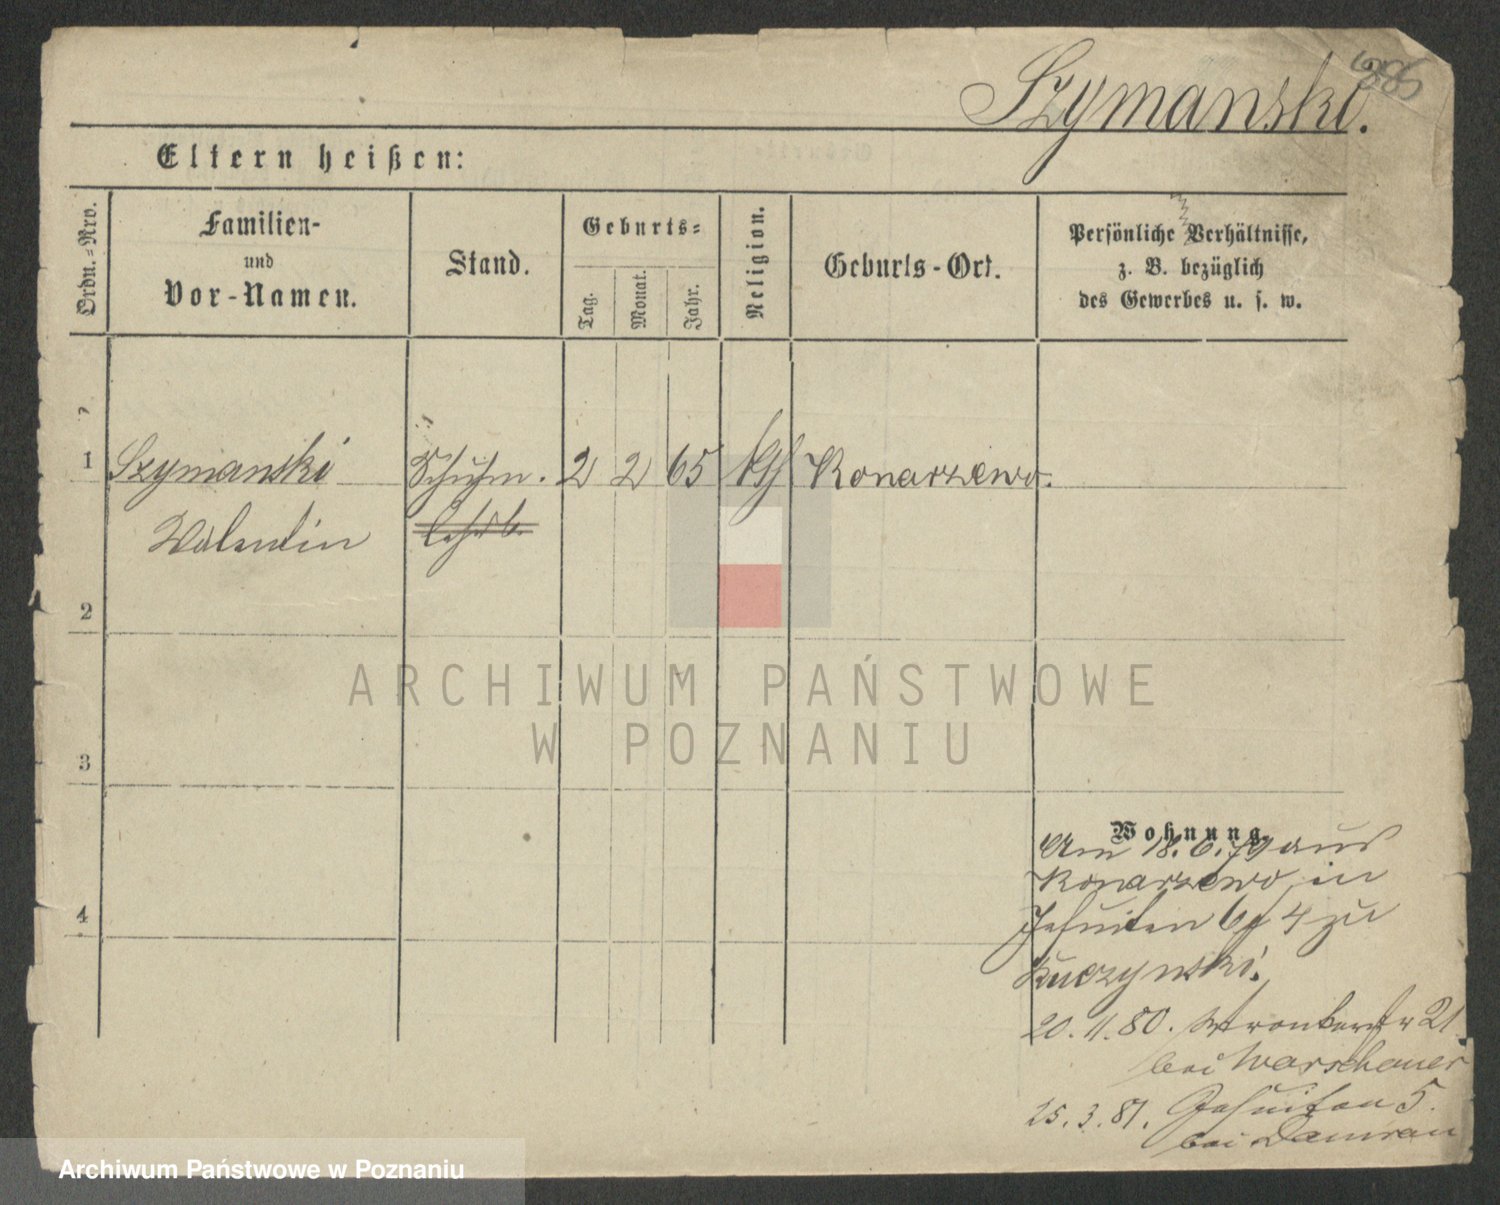 386
Szymanski.
Eltern heißen:
Ordn.-Nro.
Familien-
und
Vor-Namen.
Stand.
Geburts-
Tag.
Monat.
Jahr.
Religion.
Geburts-Ort.
Persönliche Verhältnisse,
z. B. bezüglich
des Gewerbes u. s. w.
1 Szymanski Schuhm. 2 2 65 kth Konarzewo.
Valentin Lehrb.
2
3
4
Wohnung.
Am 18.6.79 aus
Konarzewo in
Jesuiten 4 zu
Kuczynski.
20.11.80. Wronkerstr 21
bei Warschauer
25.3.81. Jesuiten 5.
bei
ARCHIWUM PAŃSTWOWE
W POZNANIU
Archiwum Państwowe w Poznaniu